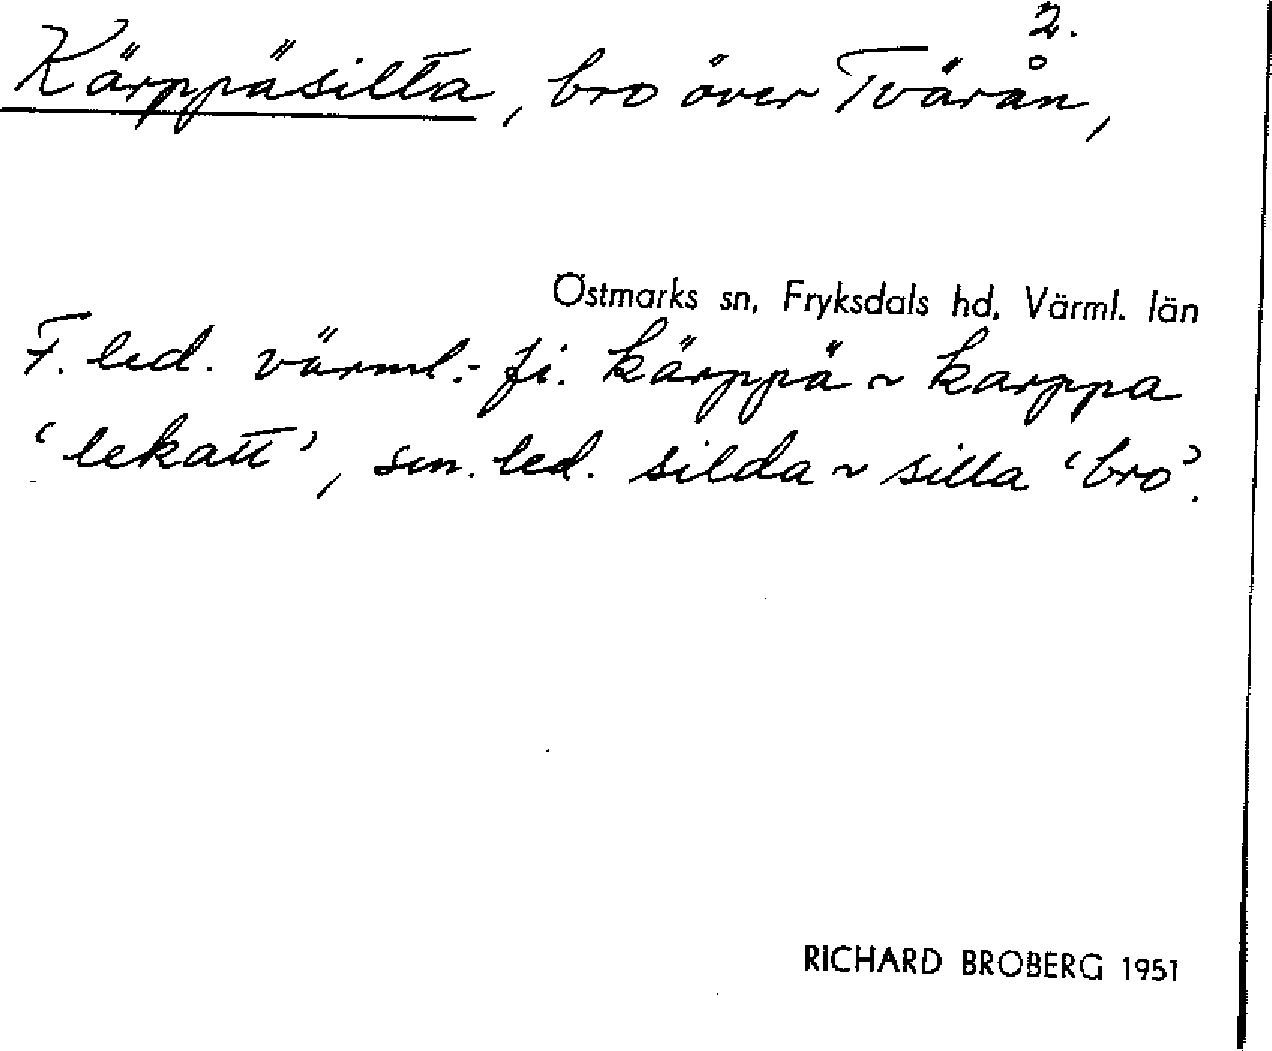 2.
Kärppäsilta, bro över Tvärån,
Östmarks sn, Fryksdals hd, Värml. län
F. led. värml.-fi. kärppä ~ karppa
‘lekatt’, sen. led. silda ~ silla ‘bro’.
RICHARD BROBERG 1951